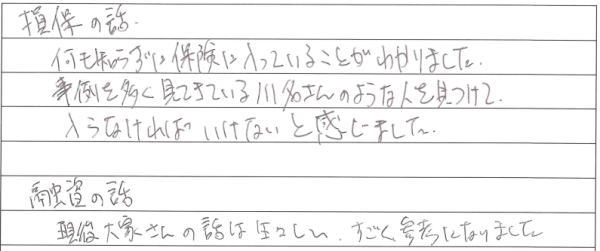 損保の話.
何も知らずに保険に入っていることがわかりました.
事例を多く見てきている川名さんのような人を見つけて.
入らなければいけないと感じました.
融資の話
現役大家さんの話は生々しい、すごく参考になりました